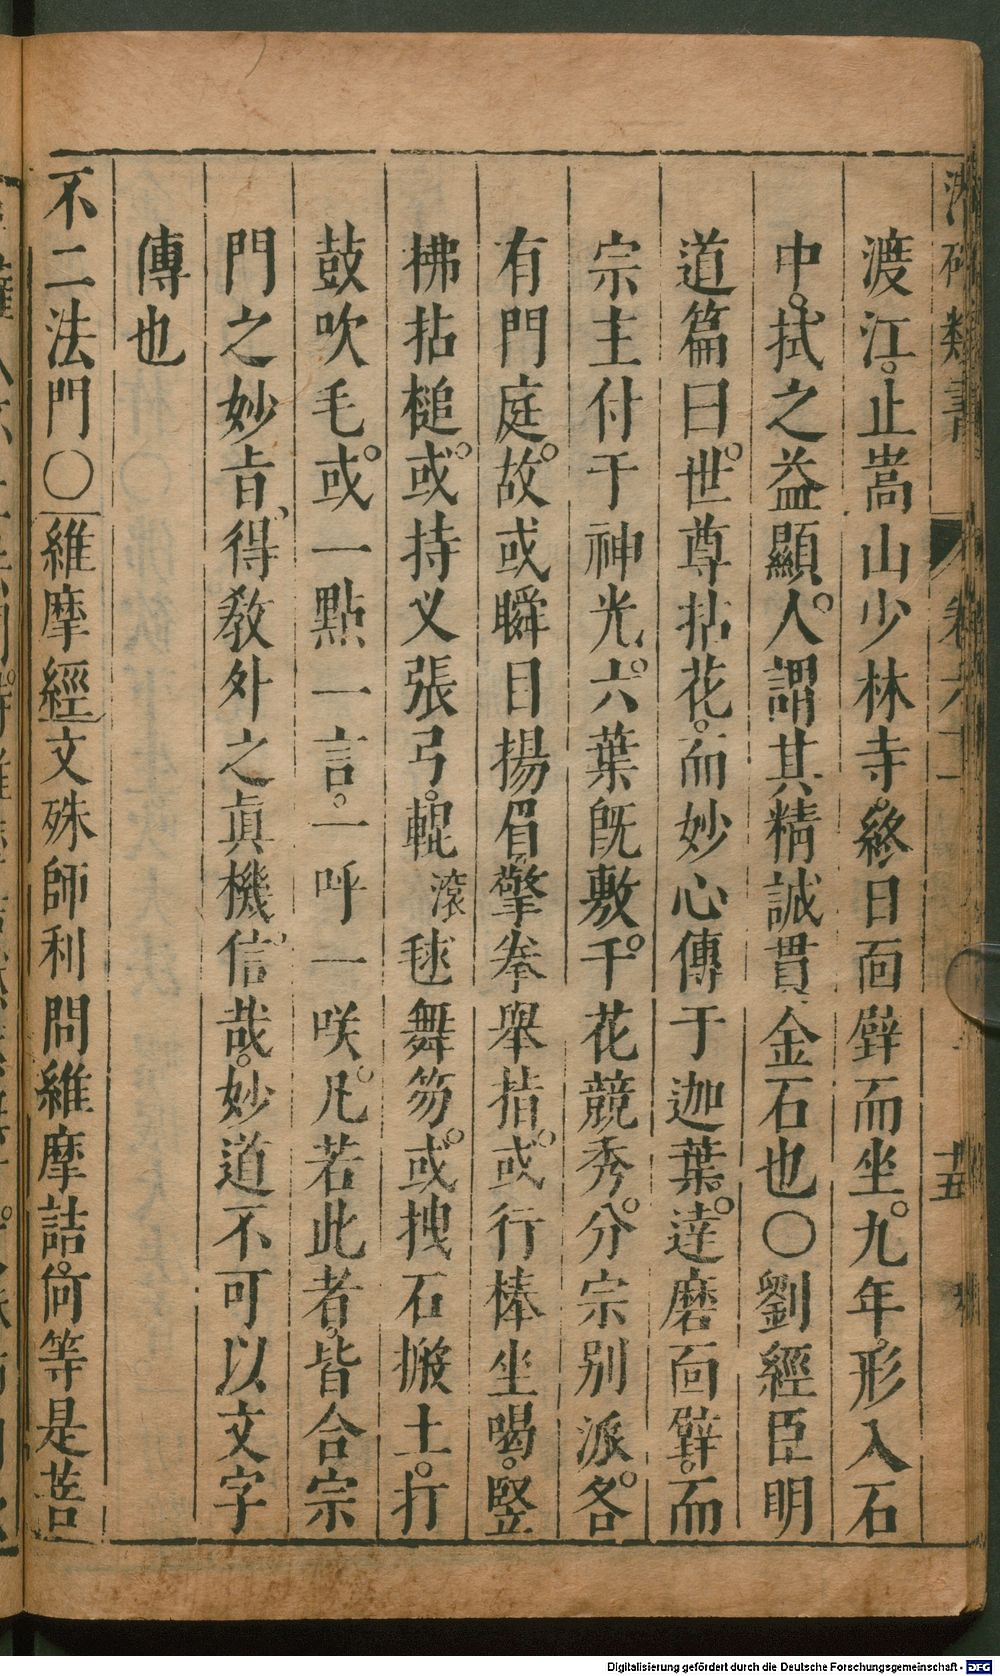 渡江。止嵩山少林寺。終日面壁而坐。九年。形入石
中。拭之益顯。人謂其精誠貫金石也〇劉經臣明
道篇曰。世尊拈花。而妙心傳于迦葉。達磨面壁。而
宗主付于神光。六葉既敷。千花競秀。分宗别派。各
有門庭。故或瞬目揚眉。擎拳舉指。或行棒坐喝。竪
拂拈槌。或持义張弓。輥滚毬舞笏。或拽石搬土。打
鼓吹毛。或一點一言。一呼一咲。凡若此者。皆合宗
門之妙旨、得教外之眞機、信哉。妙道不可以文字
傳也
不二法門〇維摩經文殊師利問維摩詰。何等是菩
Digitalisierung gefördert durch die Deutsche Forschungsgemeinschaft - DFG